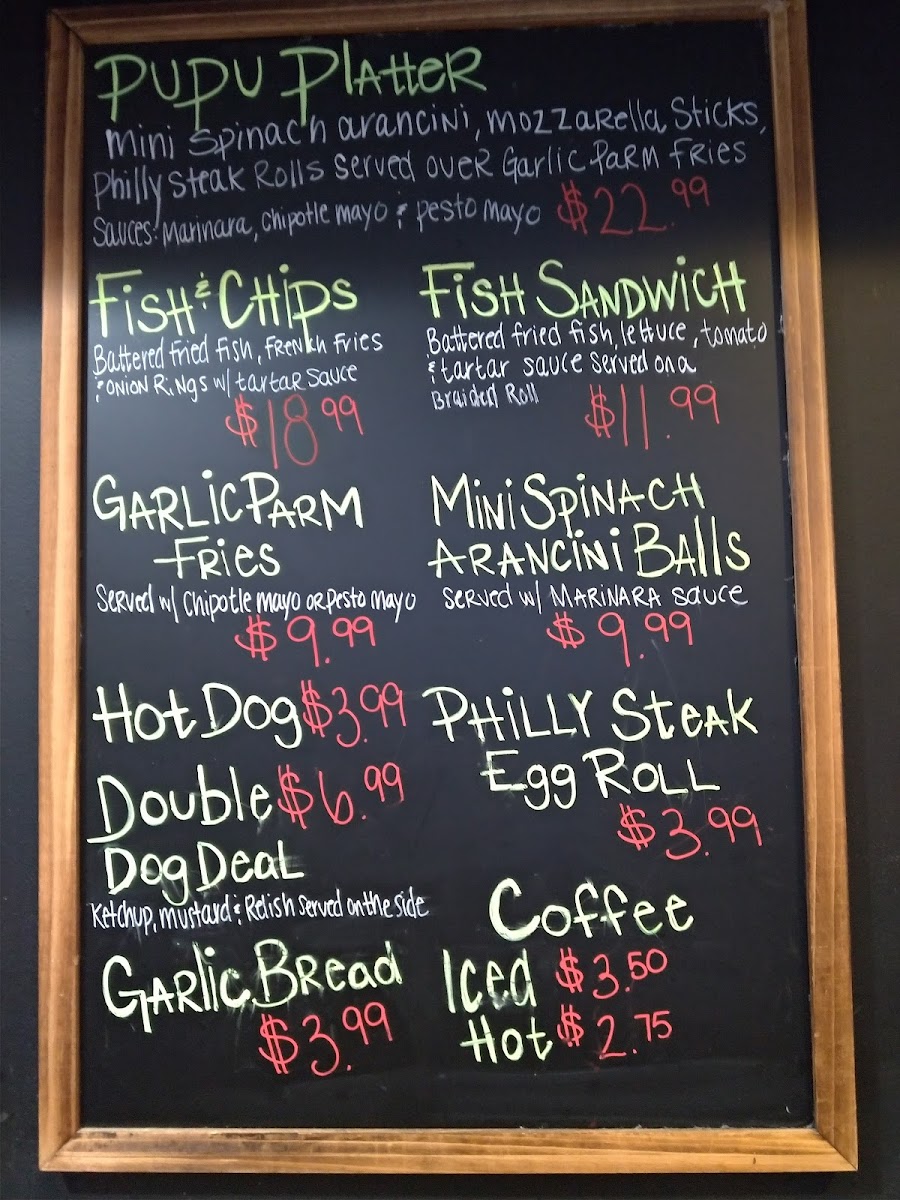 PUPU PLATTER
MINI SPINACH ARANCINI, MOZZARELLA STICKS,
PHILLY STEAK ROLLS SERVED OVER GARLIC PARM FRIES
SAUCES: MARINARA, CHIPOTLE MAYO & PESTO MAYO $22.99
FISH & CHIPS
BATTERED FRIED FISH, FRENCH FRIES
& ONION RINGS W/ TARTAR SAUCE
$18.99
FISH SANDWICH
BATTERED FRIED FISH, LETTUCE, TOMATO
& TARTAR SAUCE SERVED ON A
BRAIDED ROLL
$11.99
GARLIC PARM
FRIES
SERVED W/ CHIPOTLE MAYO OR PESTO MAYO
$9.99
MINI SPINACH
ARANCINI BALLS
SERVED W/ MARINARA SAUCE
$9.99
HOT DOG $3.99
DOUBLE $6.99
DOG DEAL
KETCHUP, MUSTARD & RELISH SERVED ON THE SIDE
PHILLY STEAK
EGG ROLL
$3.99
GARLIC BREAD
$3.99
COFFEE
ICED $3.50
HOT $2.75